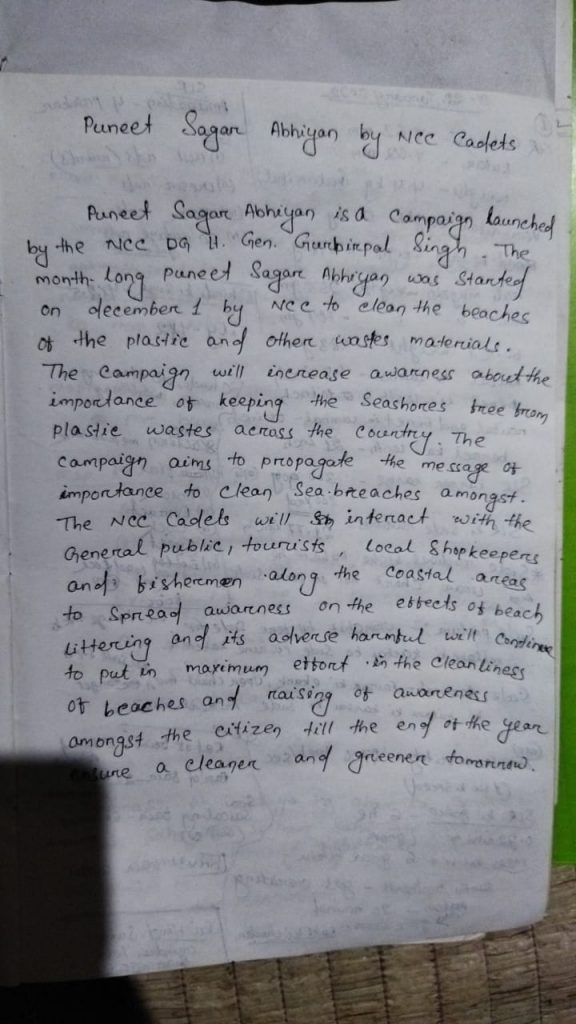 Puneet Sagar Abhiyan by NCC Cadets
Puneet Sagar Abhiyan is a Campaign launched
by the NCC DG Lt. Gen. Gurbirpal Singh. The
month-long puneet Sagar Abhiyan was Started
on december 1 by NCC to clean the beaches
of the plastic and other wastes materials.
The Campaign will increase awarness about the
importance of keeping the Seashores free from
plastic wastes across the Country. The
Campaign aims to propagate the message of
importance to clean Sea-breaches amongst.
The NCC Cadets will interact with the
General public, tourists, local Shopkeepers
and fishermen along the coastal areas
to Spread awarness on the effects of beach
littering and its adverse harmful will Continue
to put in maximum effort in the cleanliness
of beaches and raising of awareness
amongst the citizen till the end of the year
ensure a cleaner and greener tomorrow.